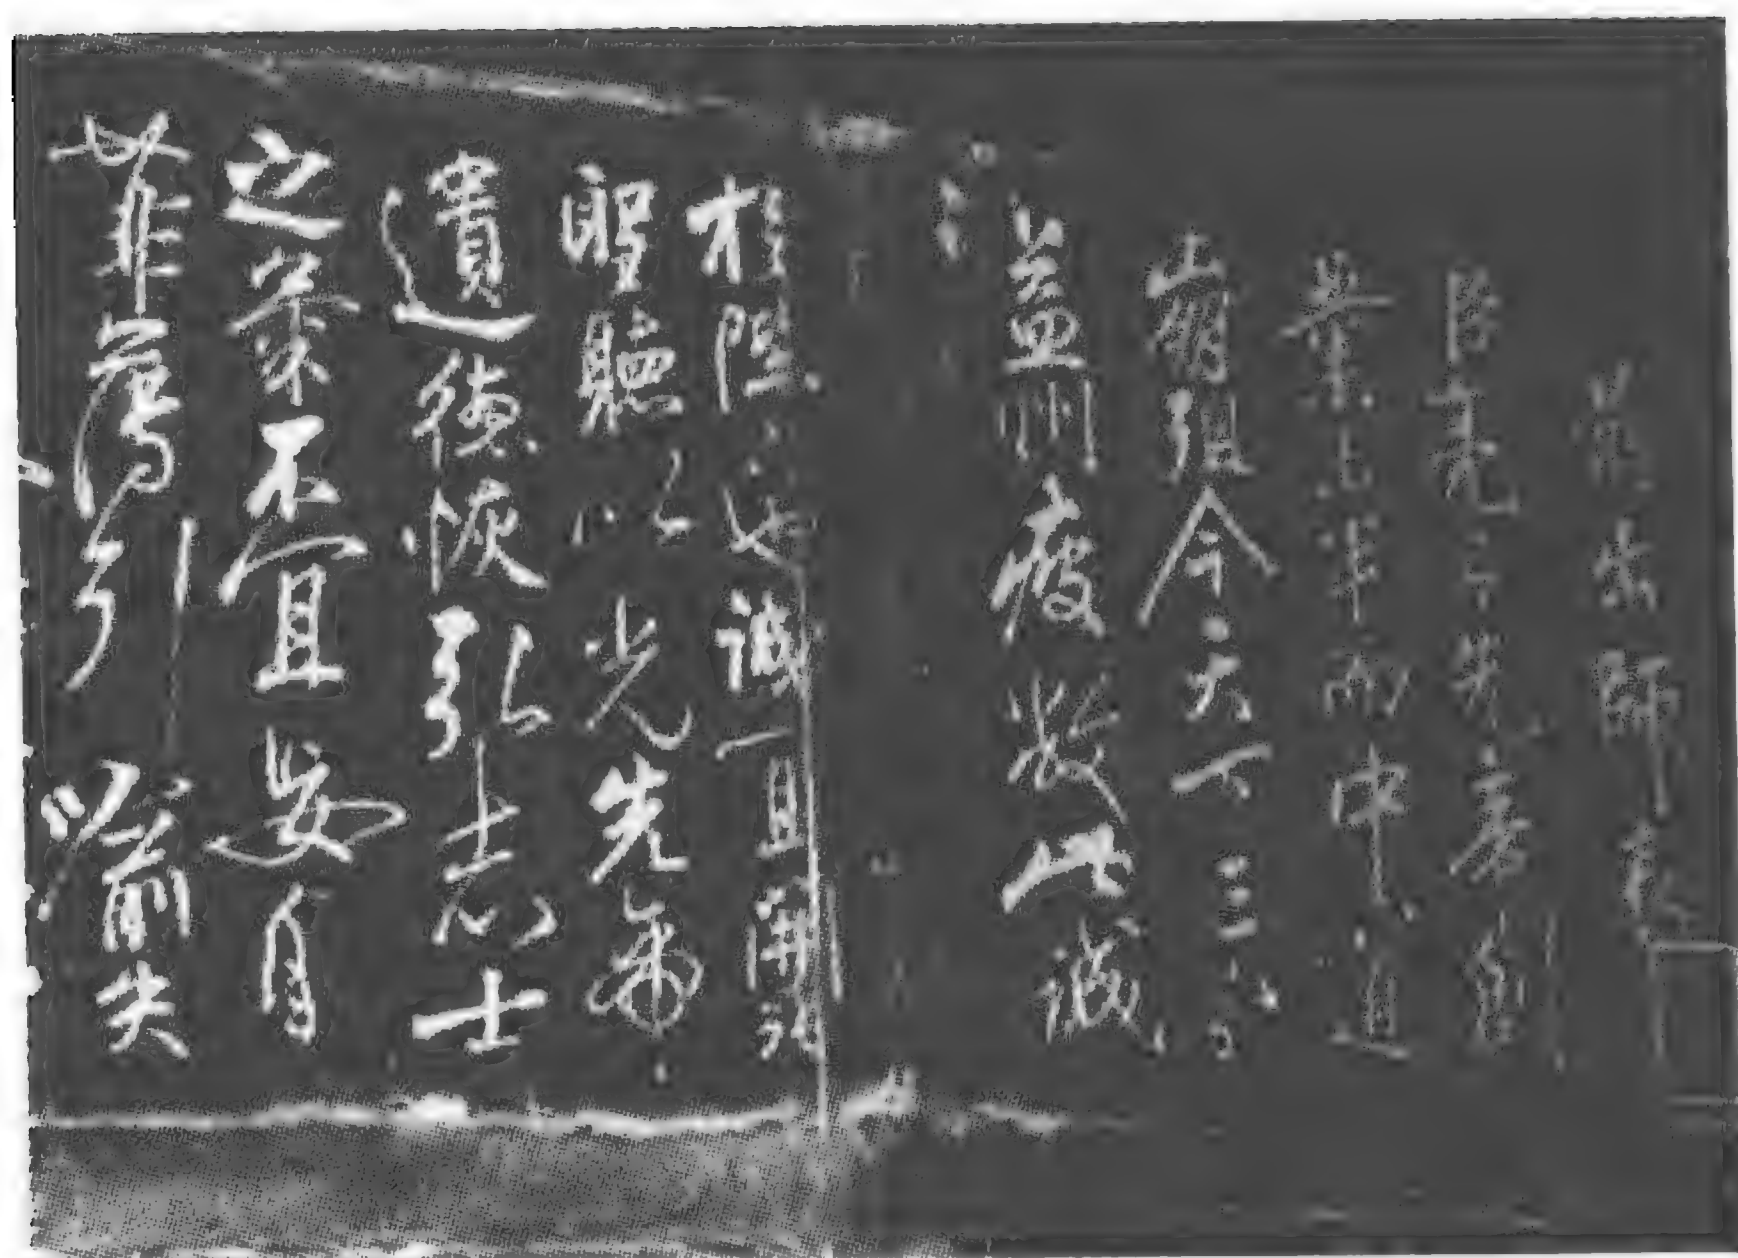 出師表
臣亮言先帝創
業未半而中道
崩殂今天下三分
益州疲敝此誠
於陛下也誠宜開張
聖聽以光先帝
遺德恢弘志士
之氣不宜妄自
菲薄引喻失